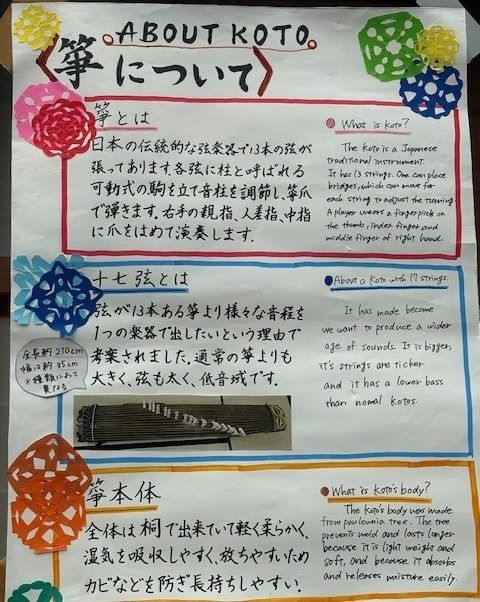 ABOUT KOTO
〈箏について〉
箏とは
日本の伝統的な弦楽器で13本の弦が
張ってあります。各弦に柱と呼ばれる
可動式の駒を立て音柱を調節し、箏爪
で弾きます。右手の親指、人差指、中指
に爪をはめて演奏します。
What is koto?
The koto is a Japanese
traditional instrument.
It has 13 strings. One can place
bridges, which can move for
each string to adjust the turning
A player wears a fingerpick on
the thumb, index finger and
middle finger of right hand.
十七弦とは
弦が13本ある箏より様々な音程を
1つの楽器で出したいという理由で
考案されました。通常の箏よりも
大きく、弦も太く、低音域です。
全長約210cm
幅は約35cm
※種類によって
異なる
About a koto with 17 strings.
It has made become
we want to produce a wider
age of sounds. It is bigger,
it's strings are ticker
and it has a lower bass
than nomal kotos.
箏本体
全体は桐で出来ていて軽く柔らかく、
湿気を吸収しやすく、放ちやすいため
カビなどを防ぎ長持ちしやすい。
What is koto's body?
The koto's body was made
from paulownia tree. The tree
prevents mold and lasts longer
because it is light weight and
soft, and because it absorbs
and releases moisture easily.